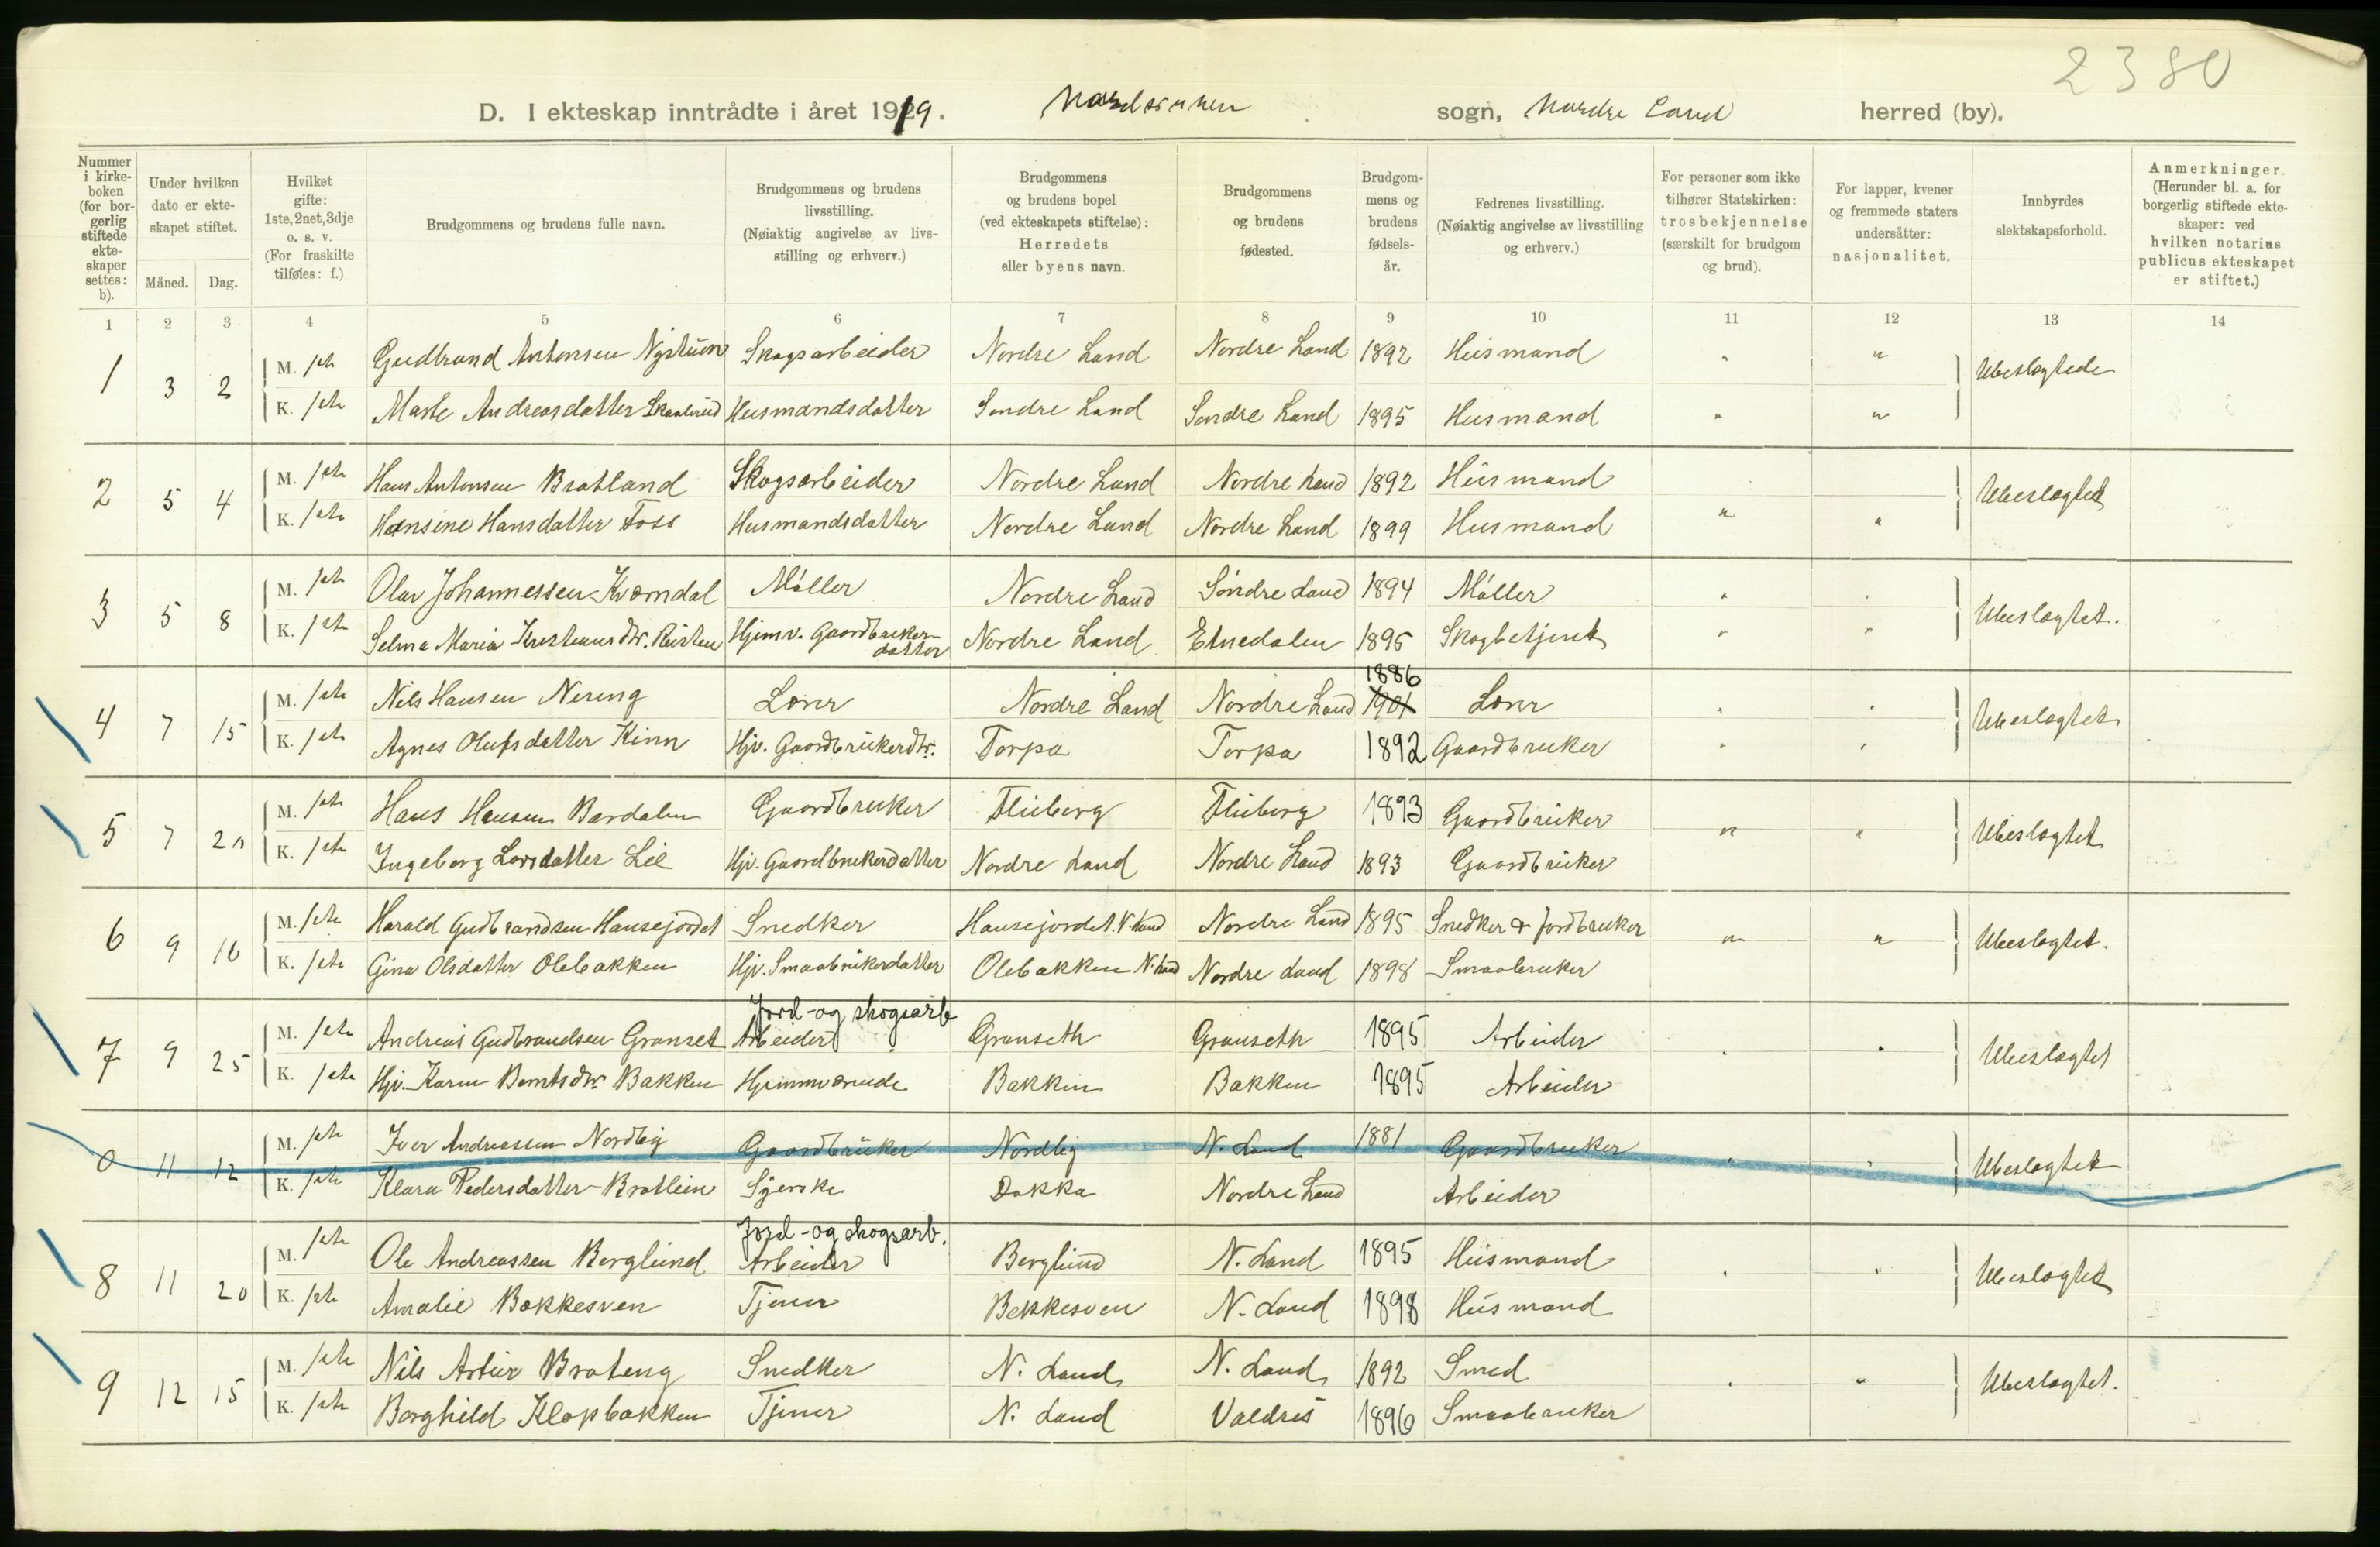 2380
D. I ekteskap inntrådte i året 1919. Nordsinnen sogn, Nordre Land herred (by).
Nummer i kirkeboken (for borgerlig stiftede ekteskaper settes: b).
Under hvilken dato er ekteskapet stiftet.
Måned. Dag.
Hvilket gifte: 1ste, 2net, 3dje o. s. v. (For fraskilte tilføies: f.)
Brudgommens og brudens fulle navn.
Brudgommens og brudens livsstilling. (Nøiaktig angivelse av livsstilling og erhverv.)
Brudgommens og brudens bopel (ved ekteskapets stiftelse): Herredets eller byens navn.
Brudgommens og brudens fødested.
Brudgommens og brudens fødselsår.
Fedrenes livsstilling. (Nøiaktig angivelse av livsstilling og erhverv.)
For personer som ikke tilhører Statskirken: trosbekjennelse (særskilt for brudgom og brud).
For lapper, kvener og fremmede staters undersåtter: nasjonalitet.
Innbyrdes slektskapsforhold.
Anmerkninger. (Herunder bl. a. for borgerlig stiftede ekteskaper: ved hvilken notarius publicus ekteskapet er stiftet.)
1 2 3 4 5 6 7 8 9 10 11 12 13 14
1 3 2 M. 1ste Gudbrand Antonsen Nystuen Skogsarbeider Nordre Land Nordre Land 1892 Husmand " " Ubeslegtede
K. 1ste Marte Andreasdatter Skaalerud Husmandsdatter Søndre Land Søndre Land 1895 Husmand " "
2 5 4 M. 1ste Hans Antonsen Bratland Skogsarbeider Nordre Land Nordre Land 1892 Husmand Ubeslegtet
K. 1ste Hansine Hansdatter Foss Husmandsdatter Nordre Land Nordre Land 1899 Husmand " "
3 5 8 M. 1ste Olav Johannessen Kværndal Møller Nordre Land Søndre Land 1894 Møller " " Ubeslegtet.
K. 1ste Selma Maria Kristiansdtr. Reisten Hjemv. Gaardbrukerdatter Nordre Land Etnedalen 1895 Skogbetjent " "
4 7 15 M. 1ste Nils Hansen Nereng Lærer Nordre Land Nordre Land 1901 1886 Lærer " " Ubeslegtet
K. 1ste Agnes Olufsdatter Kinn Hjv. Gaardbrukerdtr. Torpa Torpa 1892 Gaardbruker " "
5 7 20 M. 1ste Hans Hansen Bardalen Gaardbruker Fluberg Fluberg 1893 Gaardbruker " " Ubeslegtet
K. 1ste Ingeborg Larsdatter Lie Hjv. Gaardbrukerdatter Nordre Land Nordre Land 1893 Gaardbruker
6 9 16 M. 1ste Harald Gudbrandsen Hansejordet Snedker Hansejordet. N. Land Nordre Land 1895 Snedker & jordbruker " " Ubeslegtet.
K. 1ste Gina Olsdatter Olebakken Hjv. Smaabrukerdatter Olebakken N. Land Nordre Land 1898 Smaabruker
Jord-og skogsarb
7 9 25 M. 1ste Andreas Gudbrandsen Granset Arbeider Granseth Granseth 1895 Arbeider " " Ubeslegtet
K. 1ste Hjv. Karen Berntsdtr. Bakken Hjemmeværende Bakken Bakken 1895 Arbeider
0 11 12 M. 1ste Iver Andreassen Nordbig Gaardbruker Nordbig N. Land 1881 Gaardbruker " " Ubeslegtet
K. 1ste Klara Pedersdatter Bratlien Syerske Dokka Nordre Land Arbeider
Jord-og skogsarb.
8 11 20 M. 1ste Ole Andreassen Berglund Arbeider Berglund N. Land 1895 Husmand " " Ubeslegtet
K. 1ste Amalie Bakkesven Tjener Bekkesven N. Land 1898 Husmand
9 12 15 M. 1ste Nils Artur Brateng Snedker N. Land N. Land 1892 Smed " " Ubeslegtet.
K. 1ste Borghild Klopbakken Tjener N. Land Valdres 1896 Smaabruker